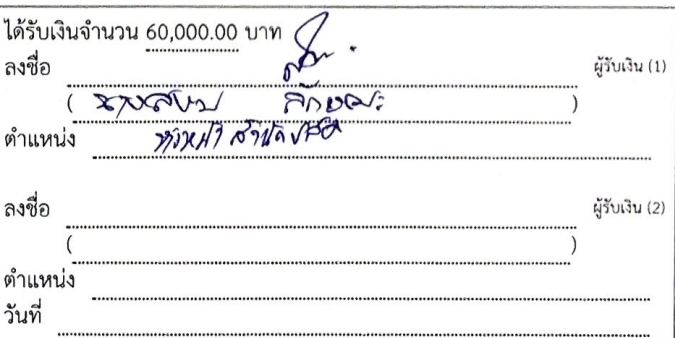 ได้รับเงินจำนวน 60,000.00 บาท
ลงชื่อ ผู้รับเงิน (1)
( )
ตำแหน่ง หัวหน้าสำนักปลัด
ลงชื่อ ผู้รับเงิน (2)
( )
ตำแหน่ง
วันที่